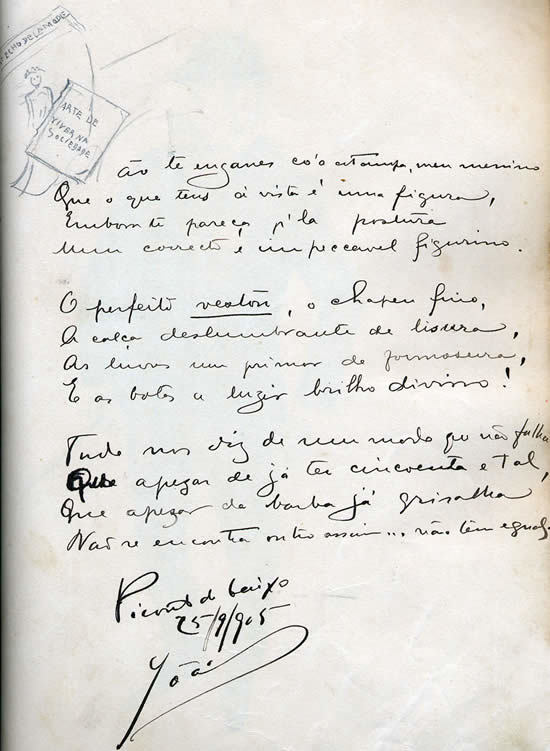 ARTE DE
VIVER NA
SOCIEDADE
ão te enganes co'o estampa, meu menino
Que o que tens á vista é uma figura,
Embora te pareça p'la postura
Um correcto e impeccavel figurino.
O perfeito veston, o chapeu fino,
A calça deslumbrante de lisura,
As luvas um primor de formosura,
E as botas a luzir brilho divino!
Tudo nos diz de um modo que não falha
Que apezar de já ter cincoenta e tal,
Que apezar da barba já grisalha
Não se encontra outro assim... não tem egual.
de baixo
25/9/905
João